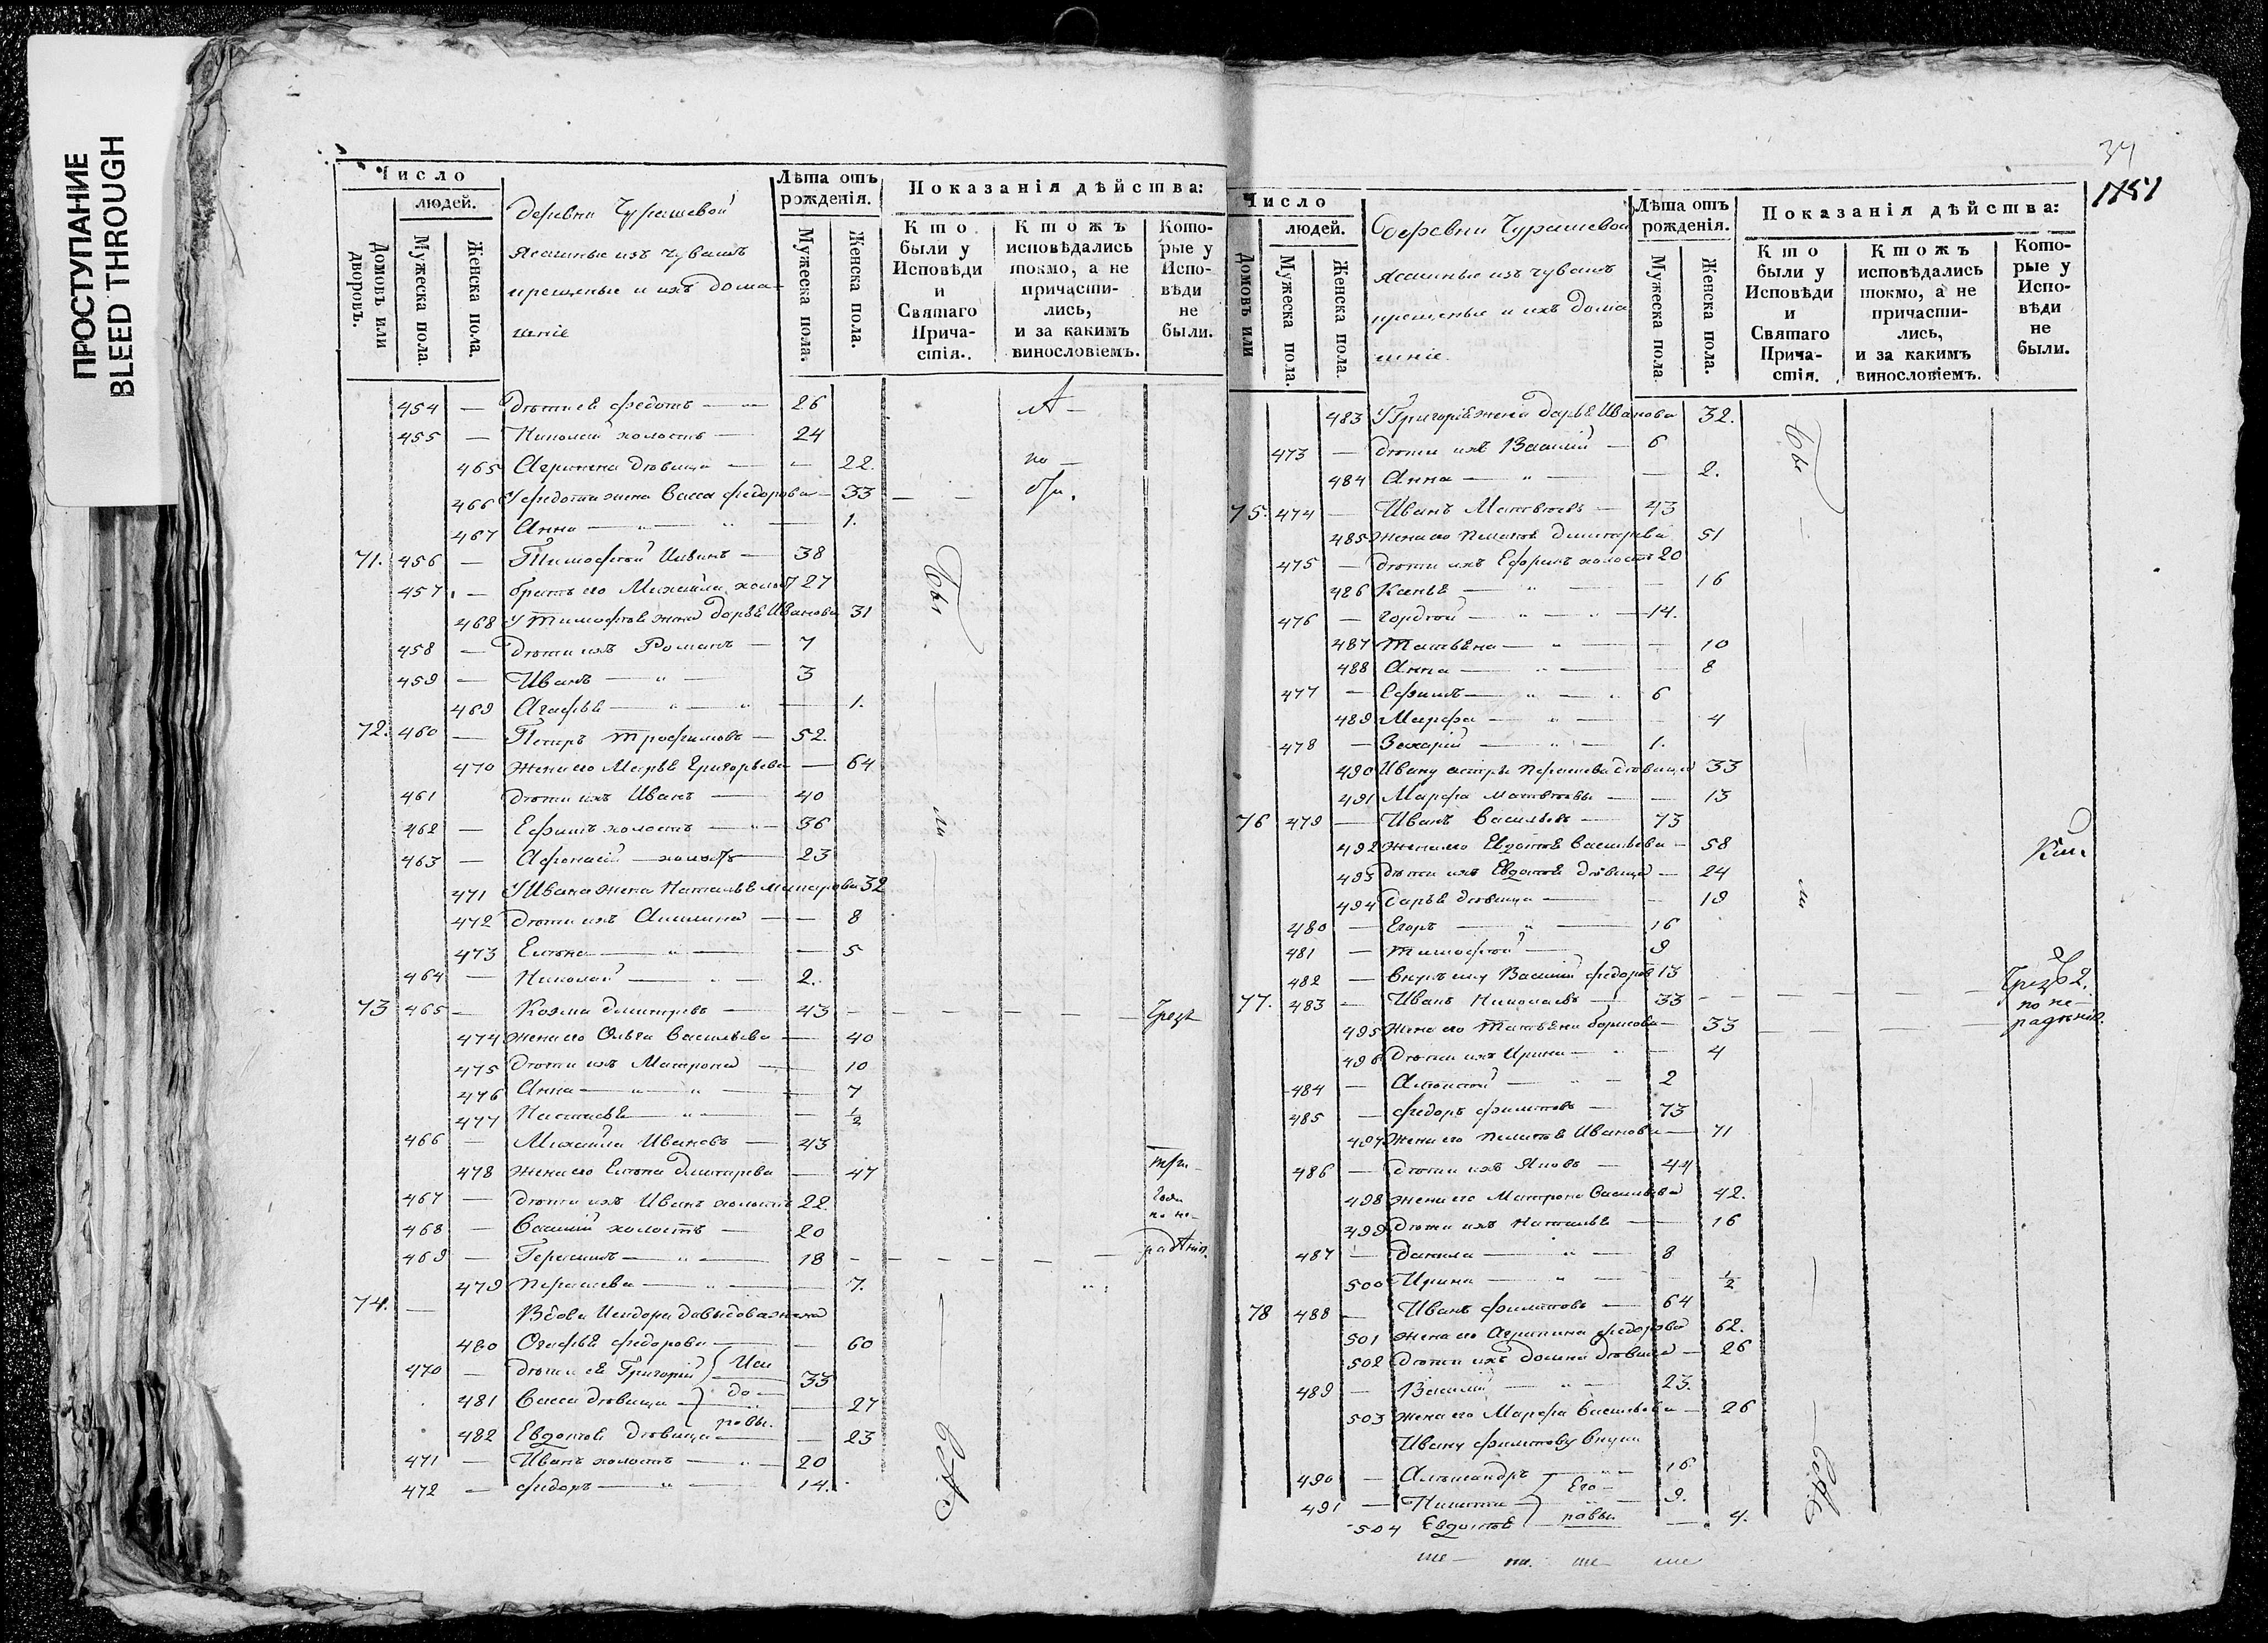 ПРОСТУПАНИЕ
BLEED THROUGH
Число
людей.
Домовъ или дворовъ.
Мужеска пола.
Женска пола.
деревни Чурашевой
ясашные изъ чувашъ
крещеные и ихъ дома-
шніе
Лѣта отъ рожденія.
Мужеска пола.
Женска пола.
Показанія дѣйства:
Кто были у Исповѣди и Святаго Причастія.
Ктожъ исповѣдались токмо, а не причастились, и за какимъ винословіемъ.
Которые у Исповѣди не были.
454 — Дѣти ея Федотъ — 26
455 — Николай холостъ — 24
465 Агрипина дѣвица — 22.
466 У Федота жена Васса Федорова — 33
467 Анна — 1.
71. 456 — Тимофей — 38
457 — братъ его Михайла холостъ 27
468 У Тимофея жена Дарья Иванова 31
458 — Дѣти ихъ Романъ — 7
459 — Иванъ — 3
469 Агафья — 1.
72. 460 — Петръ Трофимовъ — 52.
470 Жена его Марья Григорьева — 64
461 Дѣти ихъ Иванъ — 40
462 — Ефимъ холостъ — 36
463 — Афонасій — холостъ 23
471 У Ивана жена Наталья 32
472 Дѣти ихъ — 8
473 Елена — 5
464 — Николай — 2.
73 465 — Козма Дмитріевъ — 43
474 Жена его Ольга Васильева — 40
475 Дѣти ихъ Матрона — 10
476 Анна — 7
477 Настасья — 1/2
466 — Михайла Ивановъ — 43
478 Жена его Елена Дмитріева — 47
467 — Дѣти ихъ Иванъ холостъ 22.
468 — Василій холостъ — 20
469 — Герасимъ — 18
479 — 7.
74. — Вдова Исидора Давыдова жена
480 Огафья Федорова — 60
470 — Дѣти ея Григорій 33
481 Васса дѣвица — 27
482 Евдотья дѣвица — 23
Иси
до-
ровы.
471 — Иванъ холостъ — 20
472 — Федоръ — 14.
Бы
ли
всѣ
по не-
радѣнію.
34
1151
Число
людей.
Домовъ или
Мужеска пола.
Женска пола.
Деревни Чурашевой
ясашные изъ чувашъ
крещеные и ихъ дома
шніе.
Лѣта отъ рожденія.
Мужеска пола
Женска пола.
Показанія дѣйства:
Кто были у Исповѣди и Святаго Причастія.
Ктожъ исповѣдались токмо, а не причастились, и за какимъ винословіемъ.
Которые у Исповѣди не были.
483 У Григорья жена Дарья Иванова 32.
473 — Дѣти ихъ Василий — 6
484 Анна — 2.
75. 474 — Иванъ Матвѣевъ — 43
485 Жена его Пелагея Дмитріева 51
475 — Дѣти ихъ холостъ 20
486 — 16
476 — Гордѣй — 14.
487 Татьяна — 10
488 Анна — 8
477 — Ефимъ — 6
489 Марфа — 4
478 — Захарій — 1.
490 Ивану сестра дѣвица 33
491 Марфа Матвѣева — 13
76 479 — Иванъ Васильевъ — 73
492 Жена его Евдотья Васильева — 58
493 Дѣти ихъ Евдотья дѣвица — 24
494 Дарья дѣвица — 19
480 — Егоръ — 16
481 — Тимофей — 9
482 — Внукъ ему Василій Федоровъ 13
77. 483 — Иванъ Николаевъ — 33
495 Жена его Татьяна Борисова — 33
496 Дѣти ихъ Ирина — 4
484 — Алексѣй — 2
485 — Федоръ Филиповъ — 73
497 Жена его Пелагея Иванова — 71
486 — Дѣти ихъ Яковъ — 44
498 Жена его Матрона Васильева 42.
499 Дѣти ихъ Наталья — 16
487 — Данила — 8
500 Ирина — 1/2
78 488 — Иванъ Филиповъ — 64
501 Жена его Агрипина Федорова 62.
502 Дѣти ихъ Домна дѣвица — 26
489 — Василій — 23.
503 Жена его Марфа Васильева — 26
Ивану Филипову внуки
490 — Александръ — 16
491 — Никита — 9.
504 Евдотья — 4.
Его-
ровы
Бы
ли
всѣ
по не-
радѣнію.